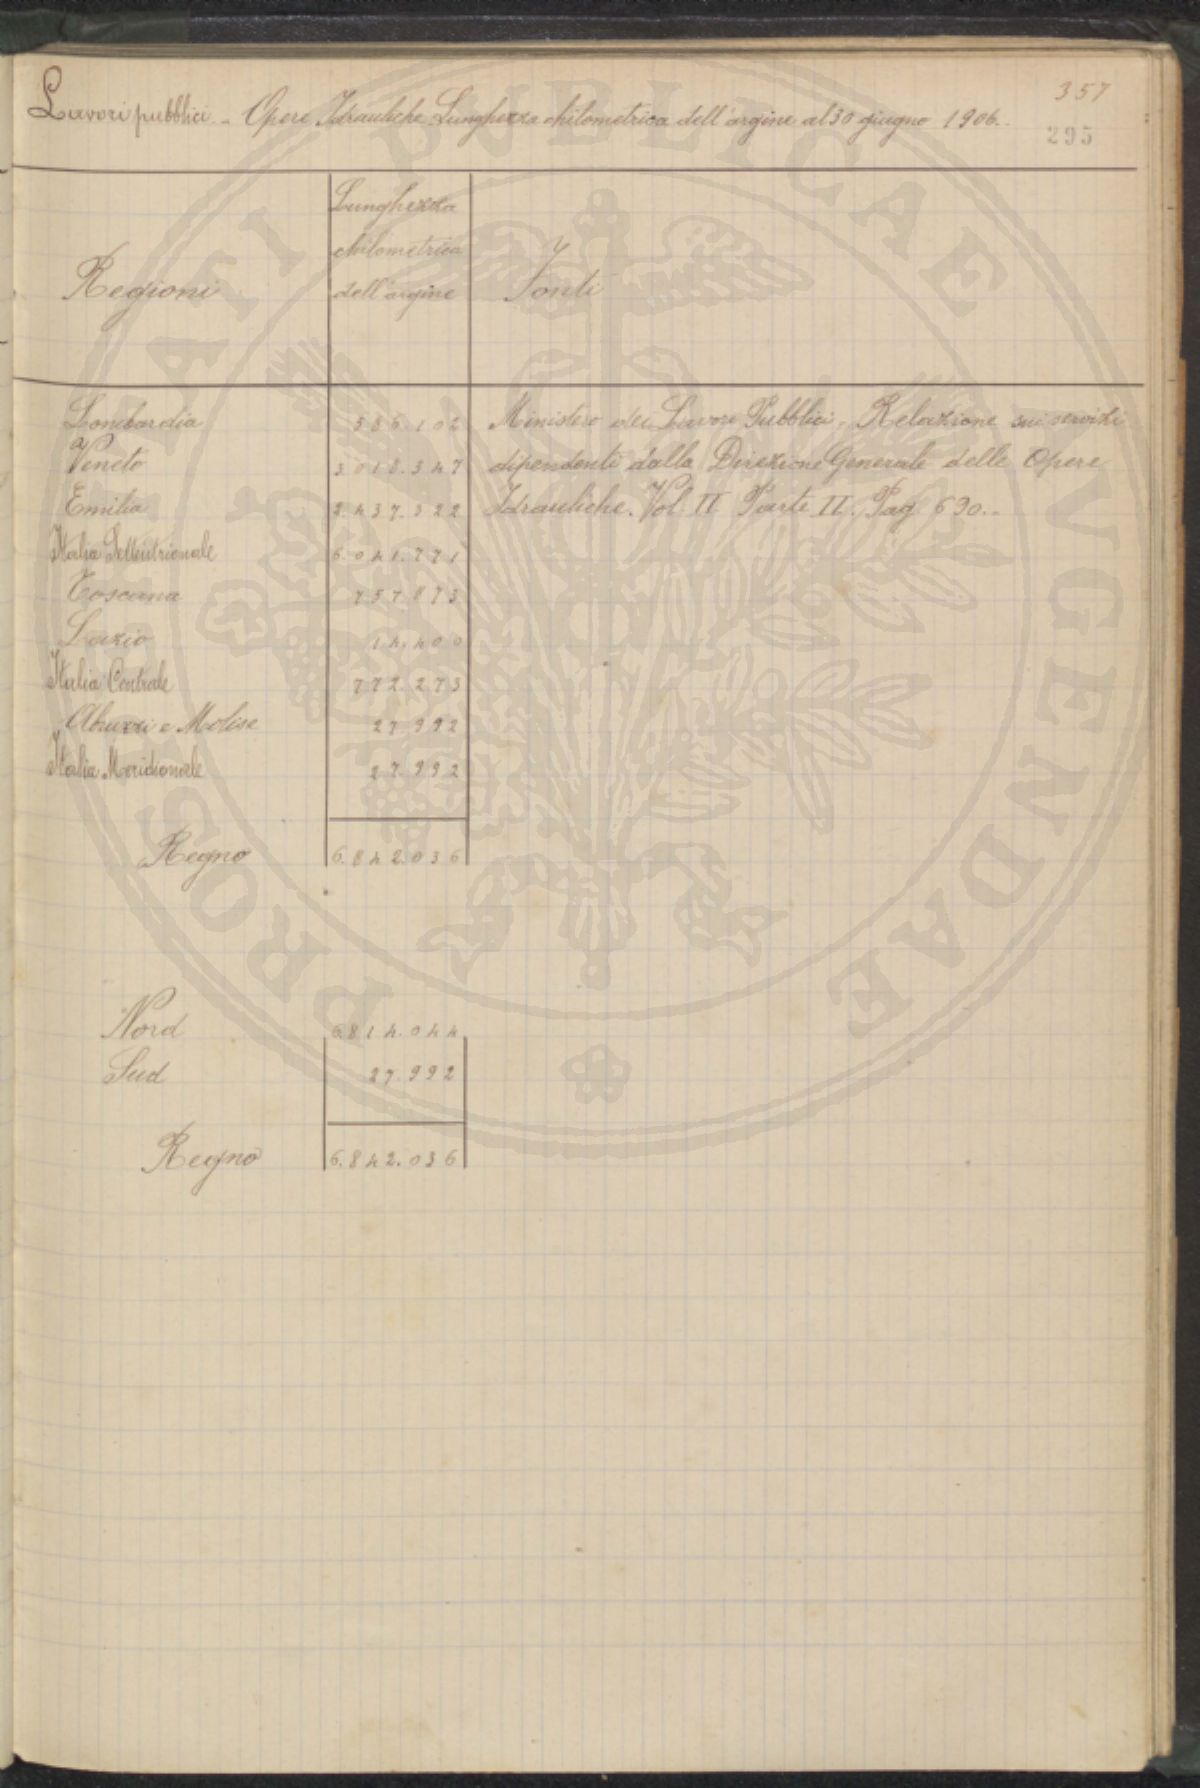 357
Lavori pubblici. - Opere Idrauliche Lunghezza chilometrica dell'argine al 30 giugno 1906.
295
Regioni
Lunghezza
chilometrica
dell'argine
Fonti
Lombardia 586.102
Veneto 3.018.347
Emilia 2.437.322
Italia Settentrionale 6.041.771
Toscana 757.873
Lazio 14.400
Italia Centrale 772.273
Abruzzi e Molise 27.992
Italia Meridionale 27.992
Regno 6.842.036
Ministero dei Lavori Pubblici, Relazione sui servizi
dipendenti dalla Direzione Generale delle Opere
Idrauliche. Vol. II Parte II. Pag 630.-
Nord 6.814.044
Sud 27.992
Regno 6.842.036
PROSPERITATI PUBLICAE AVGENDAE